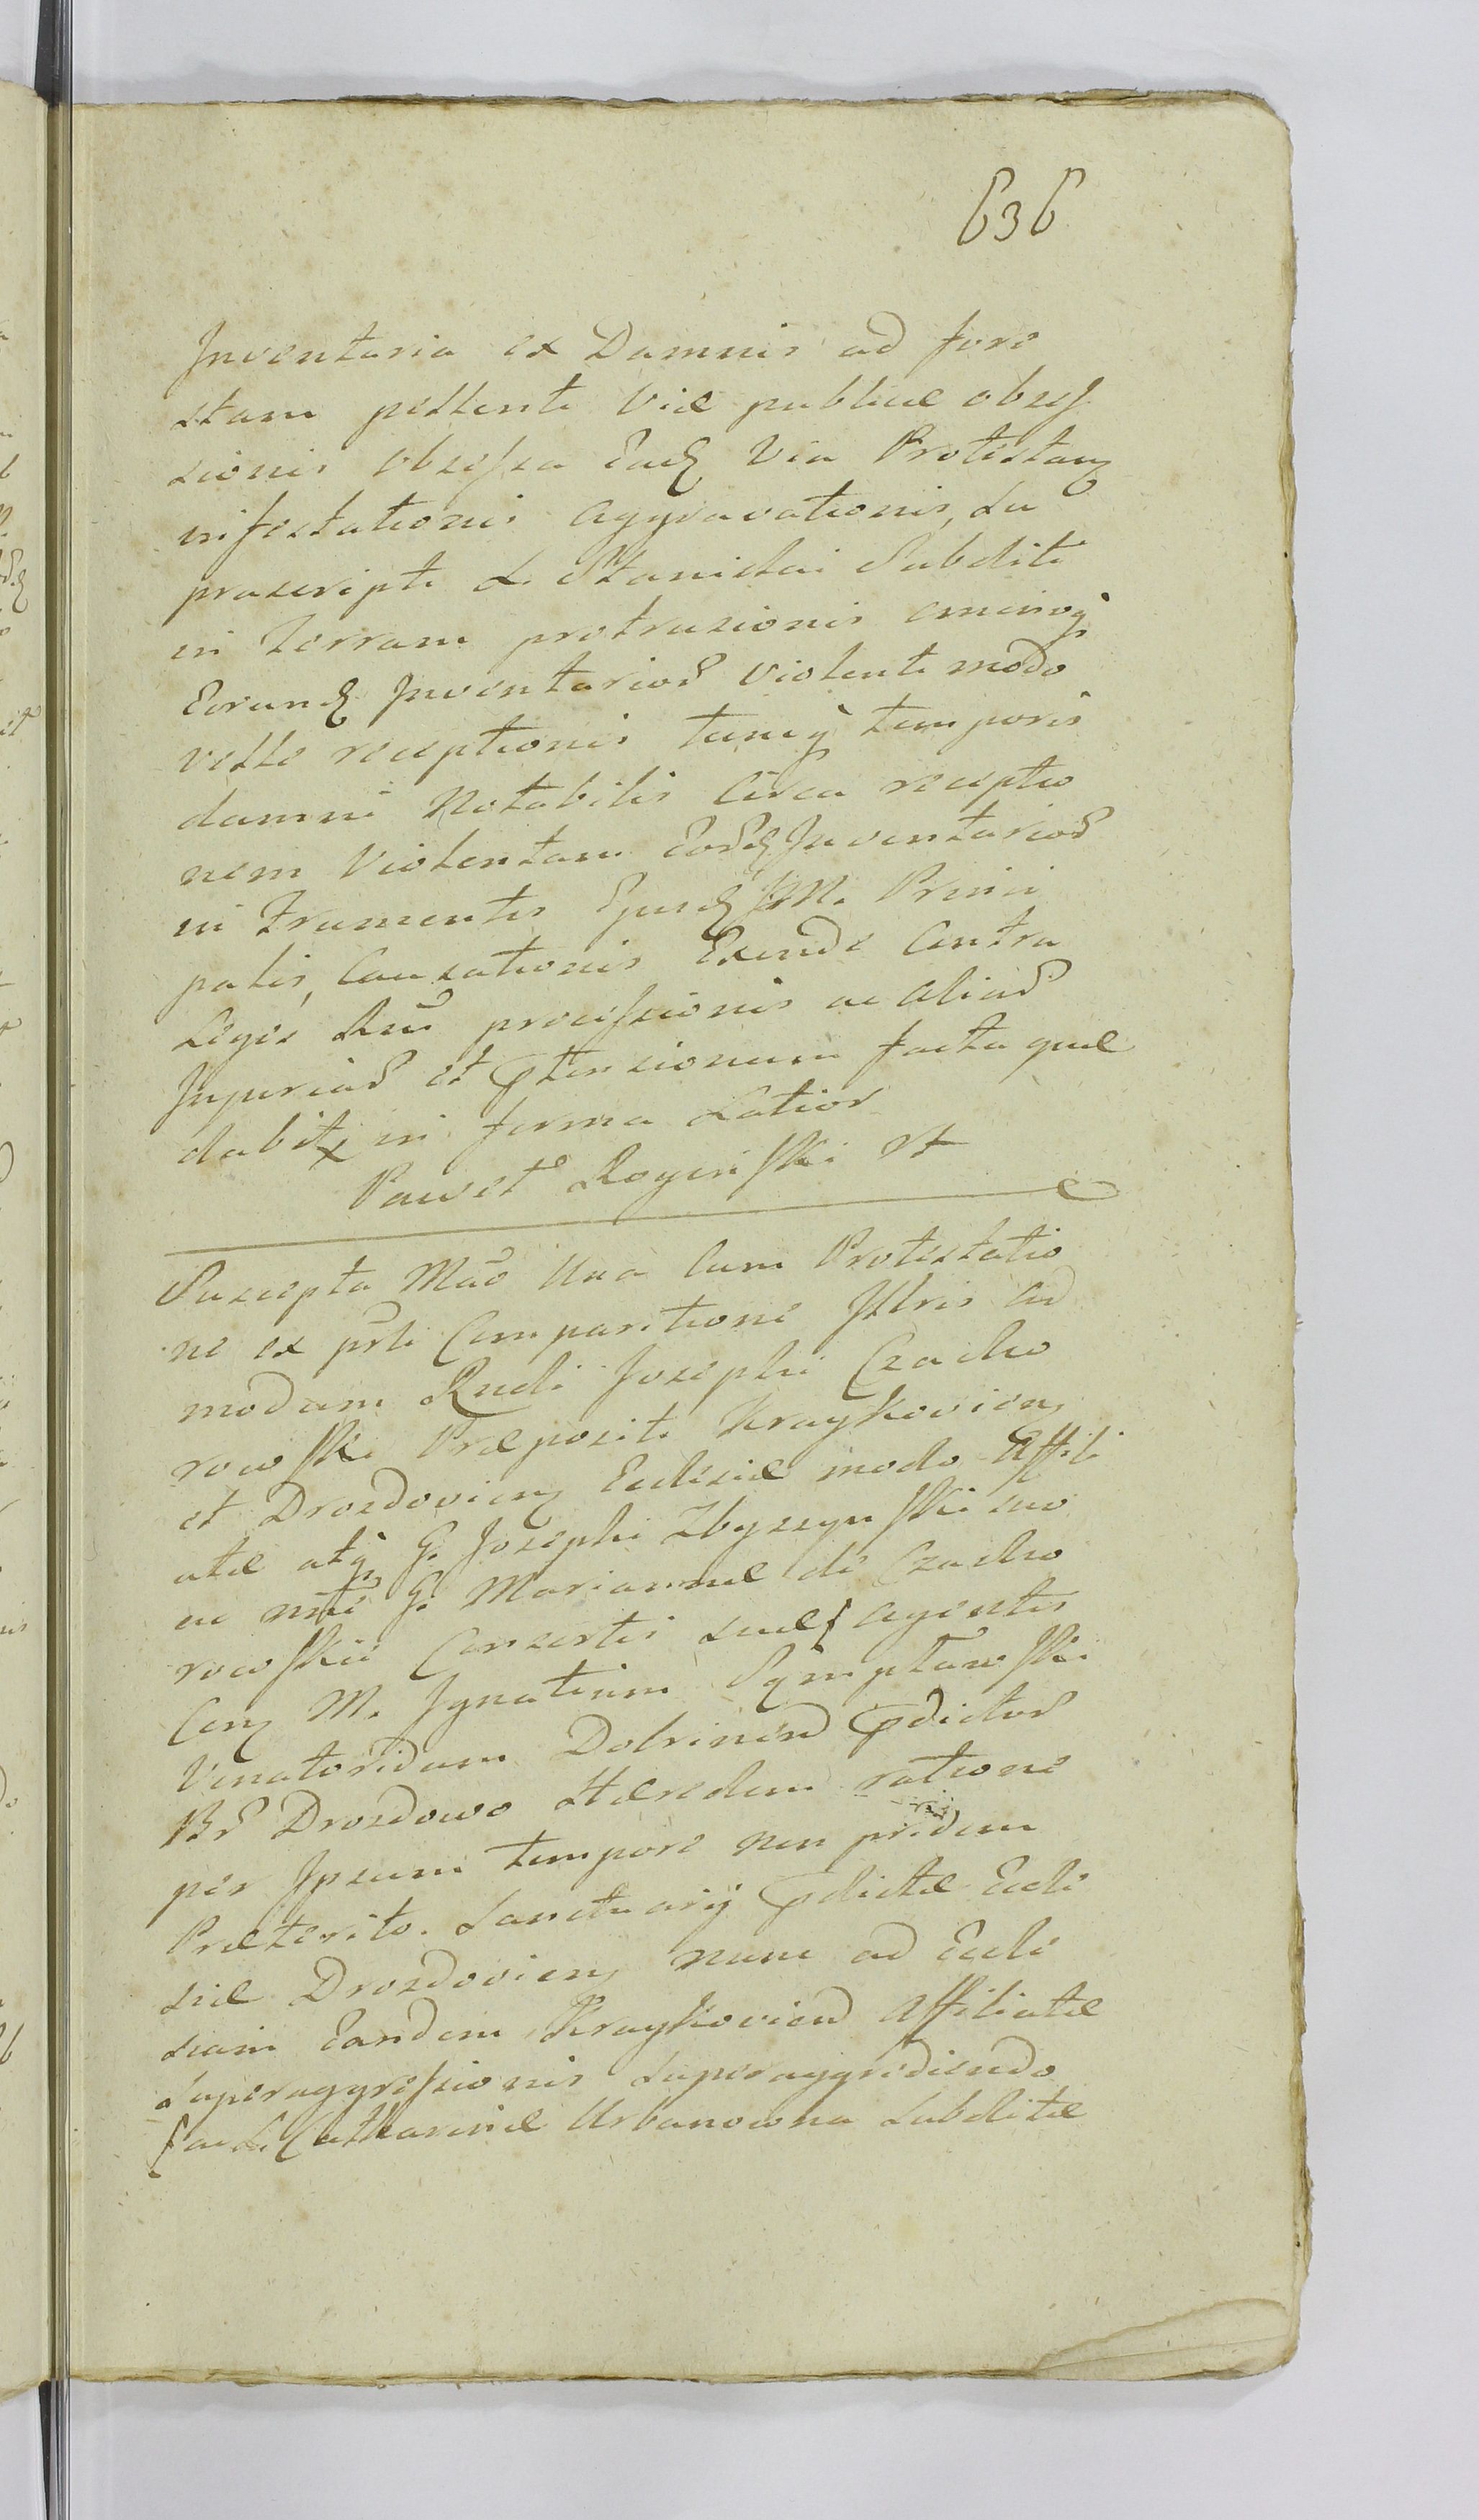 636
Inventaria ex Damnis ad fore
stam pellenti viæ publicæ obses
sionis obsessa Ead Via Protestan
infestationis aggravationis, Su
prascripti L. Stanislai Subditi
in Terram protrusionis omniuq
Eorund Inventarior violenti modo
velle receptionis tumq temporis
damni Notabilis Circa receptio
nem Violentam Eord Inventarior
in frumentis Ejusd M. Princi
palis, Causationis Exinde Contra
Leges Rni processionis ac aliar
Injuriar et ptensionum facta quæ
dabit in forma Latior
Paweł Rogiński
Suscepta Mão Una Cum Protestatio
ne ex prti Comparitione Illris Ad
modum Rndi Josephi Czacho
rowski Præpositi Kraykovien
et Drozdovien Ecclesiæ modo Affili
atæ atq G. Josephi Zbyszynski suo
ac nnõe G. Mariannæ de Czacho
rowskie Consortis suæ agentis
Con M. Ignatium Sgmptowski
Venatoridam Dobrinen pdictor
Br Drozdowo Hæredem ratione
per Ipsum tempore non pridem
Præterito. Sanctuarij pdictæ Eccle
siæ Drozdovien, nunc ad Eccle
siam Eandem Kraykovien Affiliatæ
Superaggressionis superaggrediendo
ac L. Catharinæ Urbanowna Subditæ